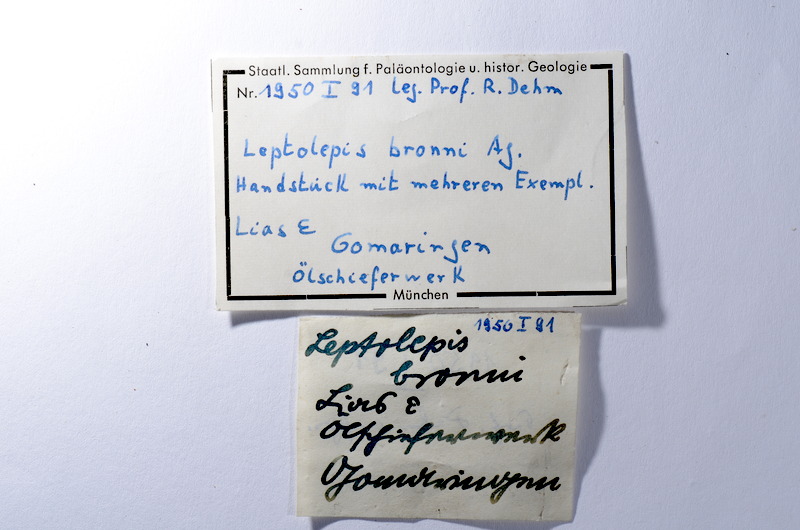 Staatl. Sammlung f. Paläontologie u. histor. Geologie
Nr. 1950 I 91 Leg. Prof. R. Dehm
Leptolepis bronni Ag.
Handstück mit mehreren Exempl.
Lias ε
Gomaringen
Ölschieferwerk
München
1950 I 91
Leptolepis
bronni
Lias ε
Ölschieferwerk
Gomaringen